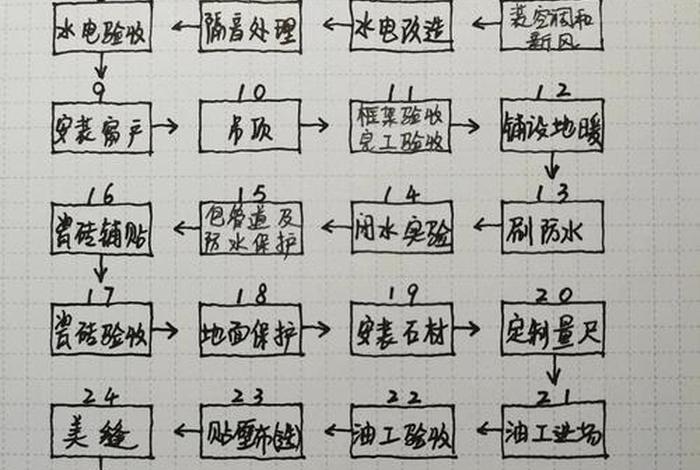 水电验收 隔音处理 水电改造 装空调和
新风
9 10 11 12
安装窗户 吊顶 框架验收 铺设地暖
完工验收
16 15 14 13
瓷砖铺贴 包管道及 闭水实验 刷防水
防水保护
17 18 19 20
瓷砖验收 地面保护 安装石材 定制量尺
24 23 22 21
美缝 贴壁布(纸) 油工验收 油工进场